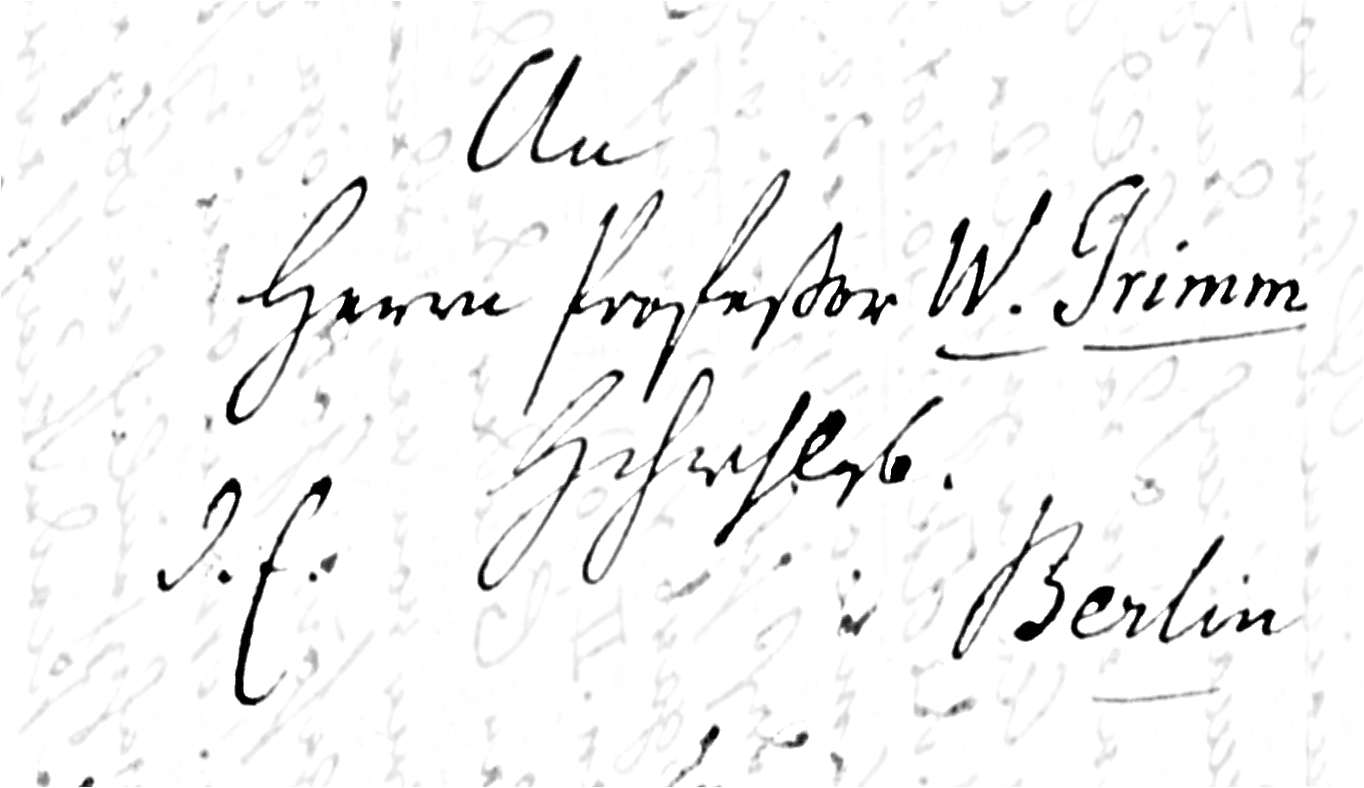 An
Herrn Professor W. Grimm
Hchwhlgb.
d. E.
Berlin